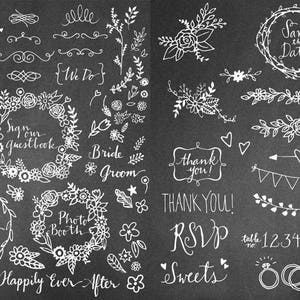 {We Do}
Sign
our
Guestbook
Bride
Groom
Photo
Booth
Happily Ever After
Save
the
Date
thank
you!
THANK YOU!
RSVP
table
no. 1234
Sweets